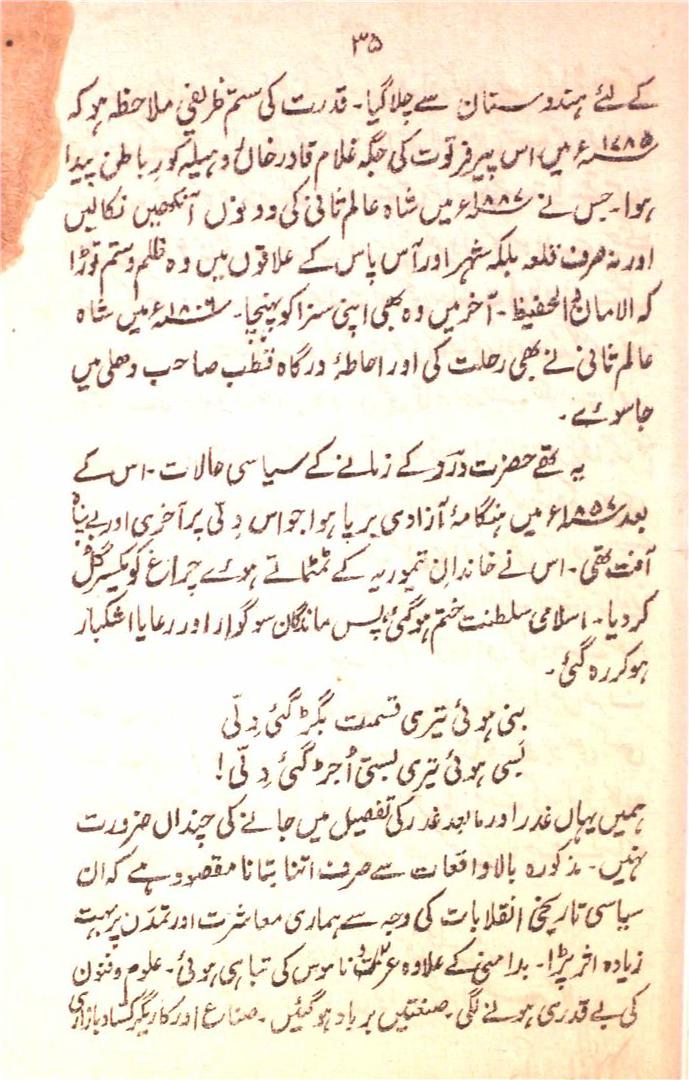 ۳۵
کے لئے ہندوستان سے چلا گیا۔ قدرت کی ستم ظریفی ملاحظہ ہو کہ
۱۷۸۵ء میں اس پیر فرتوت کی جگہ غلام قادر خاں روہیلہ کور باطن پیدا
ہوا۔ جس نے ۱۸۸۷ء میں شاہ عالم ثانی کی دونوں آنکھیں نکالیں
اور نہ صرف قلعہ بلکہ شہر اور آس پاس کے علاقوں میں وہ ظلم و ستم توڑا
کہ الامان و الحفیظ۔ آخر میں وہ بھی اپنی سزا کو پہنچا۔ ۱۸۰۶ء میں شاہ
عالم ثانی نے بھی رحلت کی اور احاطۂ درگاہ قطب صاحب دھلی میں
جا سوئے۔
یہ تھے حضرت درد کے زمانے کے سیاسی حالات۔ اس کے
بعد ۱۸۵۷ء میں ہنگامۂ آزادی برپا ہوا جو اس دلّی پر آخری اور بے پناہ
آفت تھی۔ اس نے خاندانِ تیموریہ کے ٹمٹماتے ہوئے چراغ کو یکسر گُل
کر دیا۔ اسلامی سلطنت ختم ہو گئی، پس ماندگان سوگوار اور رعایا اشکبار
ہو کر رہ گئی۔
بنی ہوئی تیری قسمت بگڑ گئی دِلّی
بَسی ہوئی تیری بستی اُجڑ گئی دِلّی!
ہمیں یہاں غدر اور مابعد غدر کی تفصیل میں جانے کی چنداں ضرورت
نہیں۔ مذکورہ بالا واقعات سے صرف اتنا بتانا مقصود ہے کہ ان
سیاسی تاریخی انقلابات کی وجہ سے ہماری معاشرت اور تمدّن پر بہت
زیادہ اثر پڑا۔ بدامنی کے علاوہ عزت و ناموس کی تباہی ہوئی۔ علوم و فنون
کی بے قدری ہونے لگی۔ صنعتیں برباد ہو گئیں۔ صناع اور کاریگر کساد بازاری